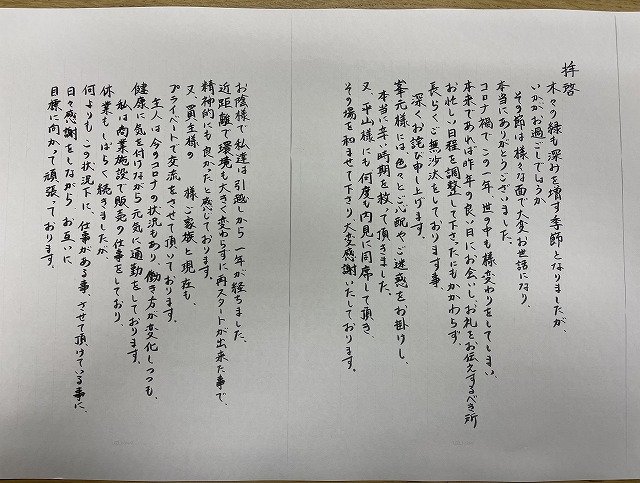 拝啓
木々の緑も深みを増す季節となりましたが、
いかがお過ごしでしょうか
その節は様々な面で大変お世話になり、
本当にありがとうございました。
コロナ禍でこの一年、世の中も様変わりをしてしまい、
本来であれば昨年の良い日にお会いし、お礼をお伝えするべき所
お忙しい日程を調整して下さったにもかかわらず、
長らくご無沙汰をしております事、
深くお詫び申し上げます。
峯元様には、色々とご心配やご迷惑をお掛けし、
本当に辛い時期を救って頂きました。
又、平山様にも何度も内見に同席して頂き、
その場を和ませて下さり、大変感謝いたしております。
お陰様で私達は引越しから一年が経ちました。
近距離で環境も大きく変わらずに再スタートが出来た事で、
精神的にも良かったと感じております。
又、買主様の 様ご家族と現在も、
プライベートで交流をさせて頂いております。
主人は今のコロナの状況もあり、働き方が変化しつつも、
健康に気を付けながら元気に通勤をしております。
私は商業施設で販売の仕事をしており、
休業もしばらく続きましたが、
何よりもこの状況下に、仕事がある事、させて頂けている事に、
日々感謝をしながら、お互いに
目標に向かって頑張っております。